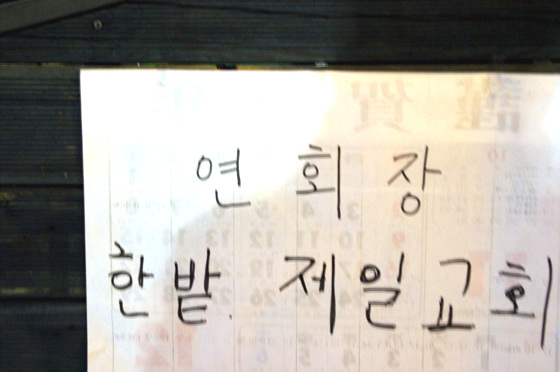 연회장
한밭 제일교회